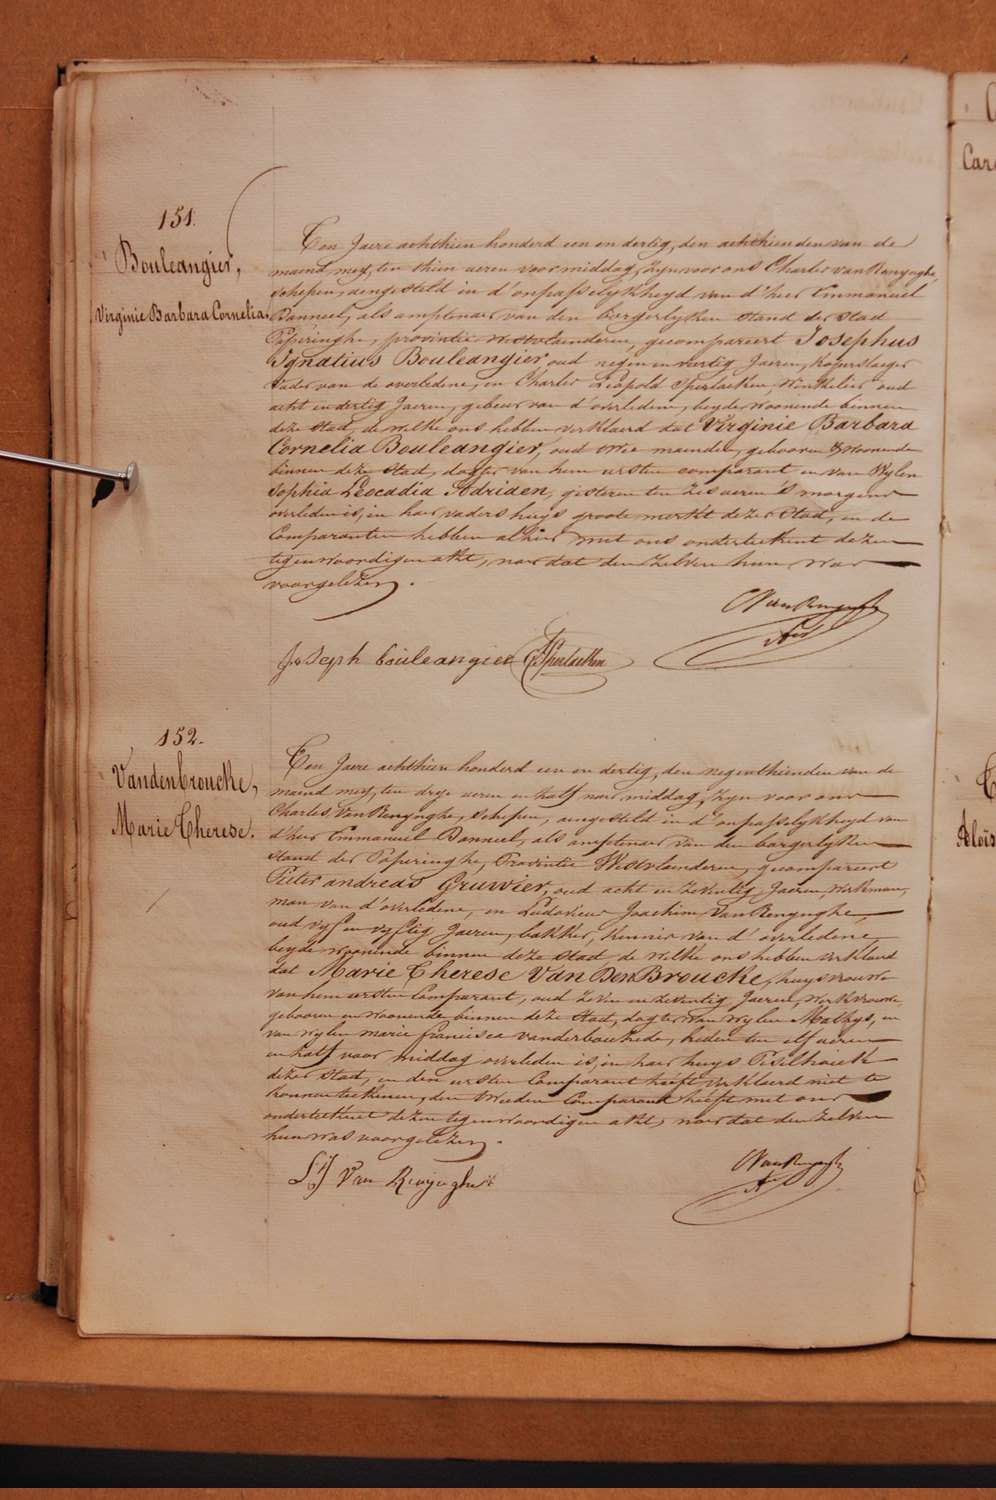 151.
Bouleangier,
Virginie Barbara Cornelia.
Ten Jaere achthien honderd een en dertig, den achthienden van de
maend mey, ten thien ueren voormiddag, zyn voor ons Charles van Renynghe,
schepen, aengesteld in d'onpasselykheyd van d'heer Emmanuel
Danneel, als amptenaer van den borgerlyken stand der Stad
Poperinghe, provintie Westvlaenderen, gecompareert Josephus
Ignatius Bouleangier, oud negen en veertig Jaeren, koperslaeger
vader van de overledene, en Charles Leopold Sperlaeken, Winkelier oud
acht en dertig Jaeren, gebeur van d'overledene, beyde woonende binnen
deze Stad, de welke ons hebben verklaerd dat Virginie Barbara
Cornelia Bouleangier, oud twee maenden, gebooren & woonende
binnen deze Stad, dogter van hem eersten comparant en van Wylen
Sophia Leocadia Adriaen, gisteren ten zes ueren 's morgens
overleden is, in haer vaders huys groote merkt dezer Stad, en de
Comparanten hebben alhier met ons onderteekent dezen
tegenwoordigen akt, naer dat den zelven hun was
voorgelezen.
CVanRenynghe
Joseph bouleangier Sperlaeken
152.
Vandenbroucke,
Marie Therese.
Ten Jaere achthien honderd een en dertig, den negenthienden van de
maend mey, ten drye ueren en half naer middag, zyn voor ons
Charles Van Renynghe, schepen, aengesteld in d'onpasselykheyd van
d'heer Emmanuel Danneel, als amptenaer van den borgerlyken
Stand der Poperinghe, Provintie Westvlaenderen, gecompareert
Pieter andreas Gruwier, oud acht en zeventig Jaeren, werkman,
man van d'overledene, en Ludovicus Joachim Van Renynghe,
oud vyf en vyftig Jaeren, bakker, kennis van d'overledene,
beyde woonende binnen deze Stad, de welke ons hebben verklaerd
dat Marie Therese Van Den Broucke, huysvrouwe
van hem eersten Comparant, oud zeven en zeventig Jaeren, Werkvrouwe,
gebooren en woonende binnen deze Stad, dogter van Wylen Mathys, en
van wylen marie francisca vanderbouhede, heden ten elf ueren
en half voor middag overleden is, in haer huys
dezer Stad, en den eersten Comparant heeft verklaerd niet te
konnen teekenen, den tweeden Comparant heeft met ons
onderteekent dezen tegenwoordigen akt, naer dat den zelven
hun was voorgelezen.
Van Renynghe
CVanRenynghe
Car
Aloïs